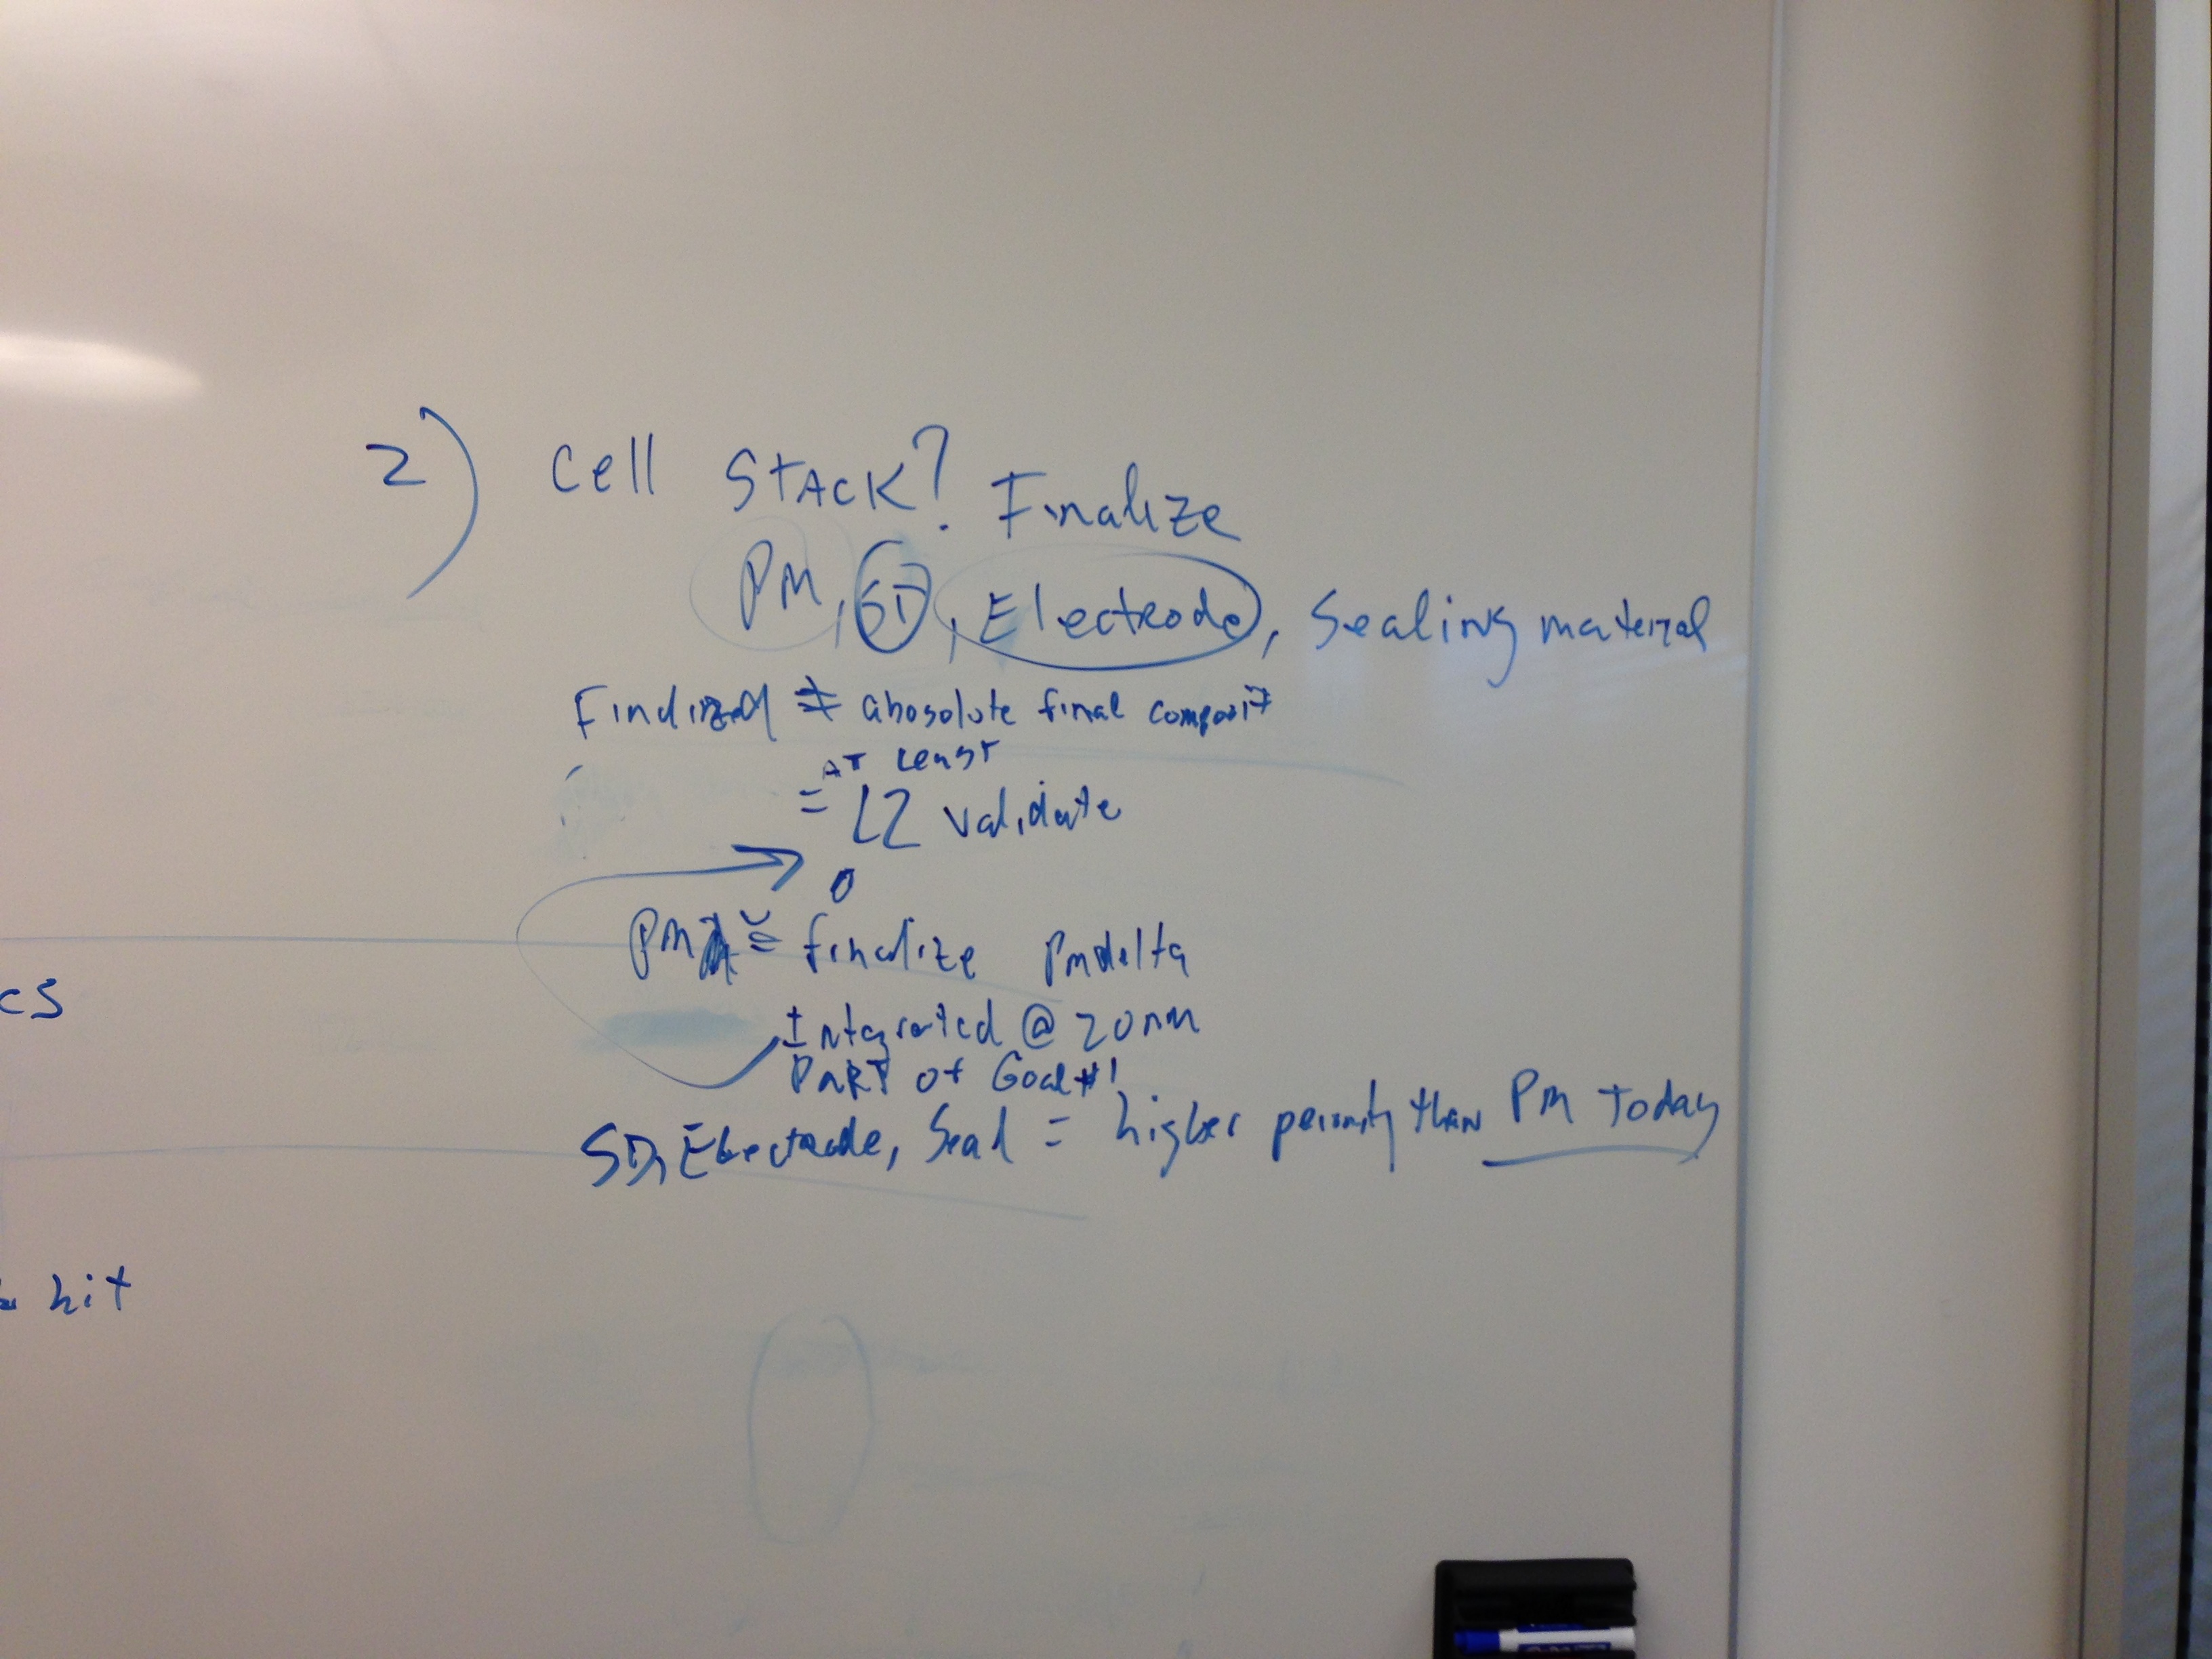 2) Cell STACK? Finalize
PM, SD, Electrode, Sealing material
Finalized ≠ abosolute final composit
AT Least
= L2 validate
PM ≅ finalize PM delta
Integrated @ 20nm
PART of Goal #1
SD, Electrode, Seal = higher periority than PM Today
cs
hit